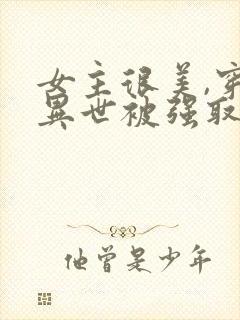 女主很美,穿
異世被强取
他曾是少年